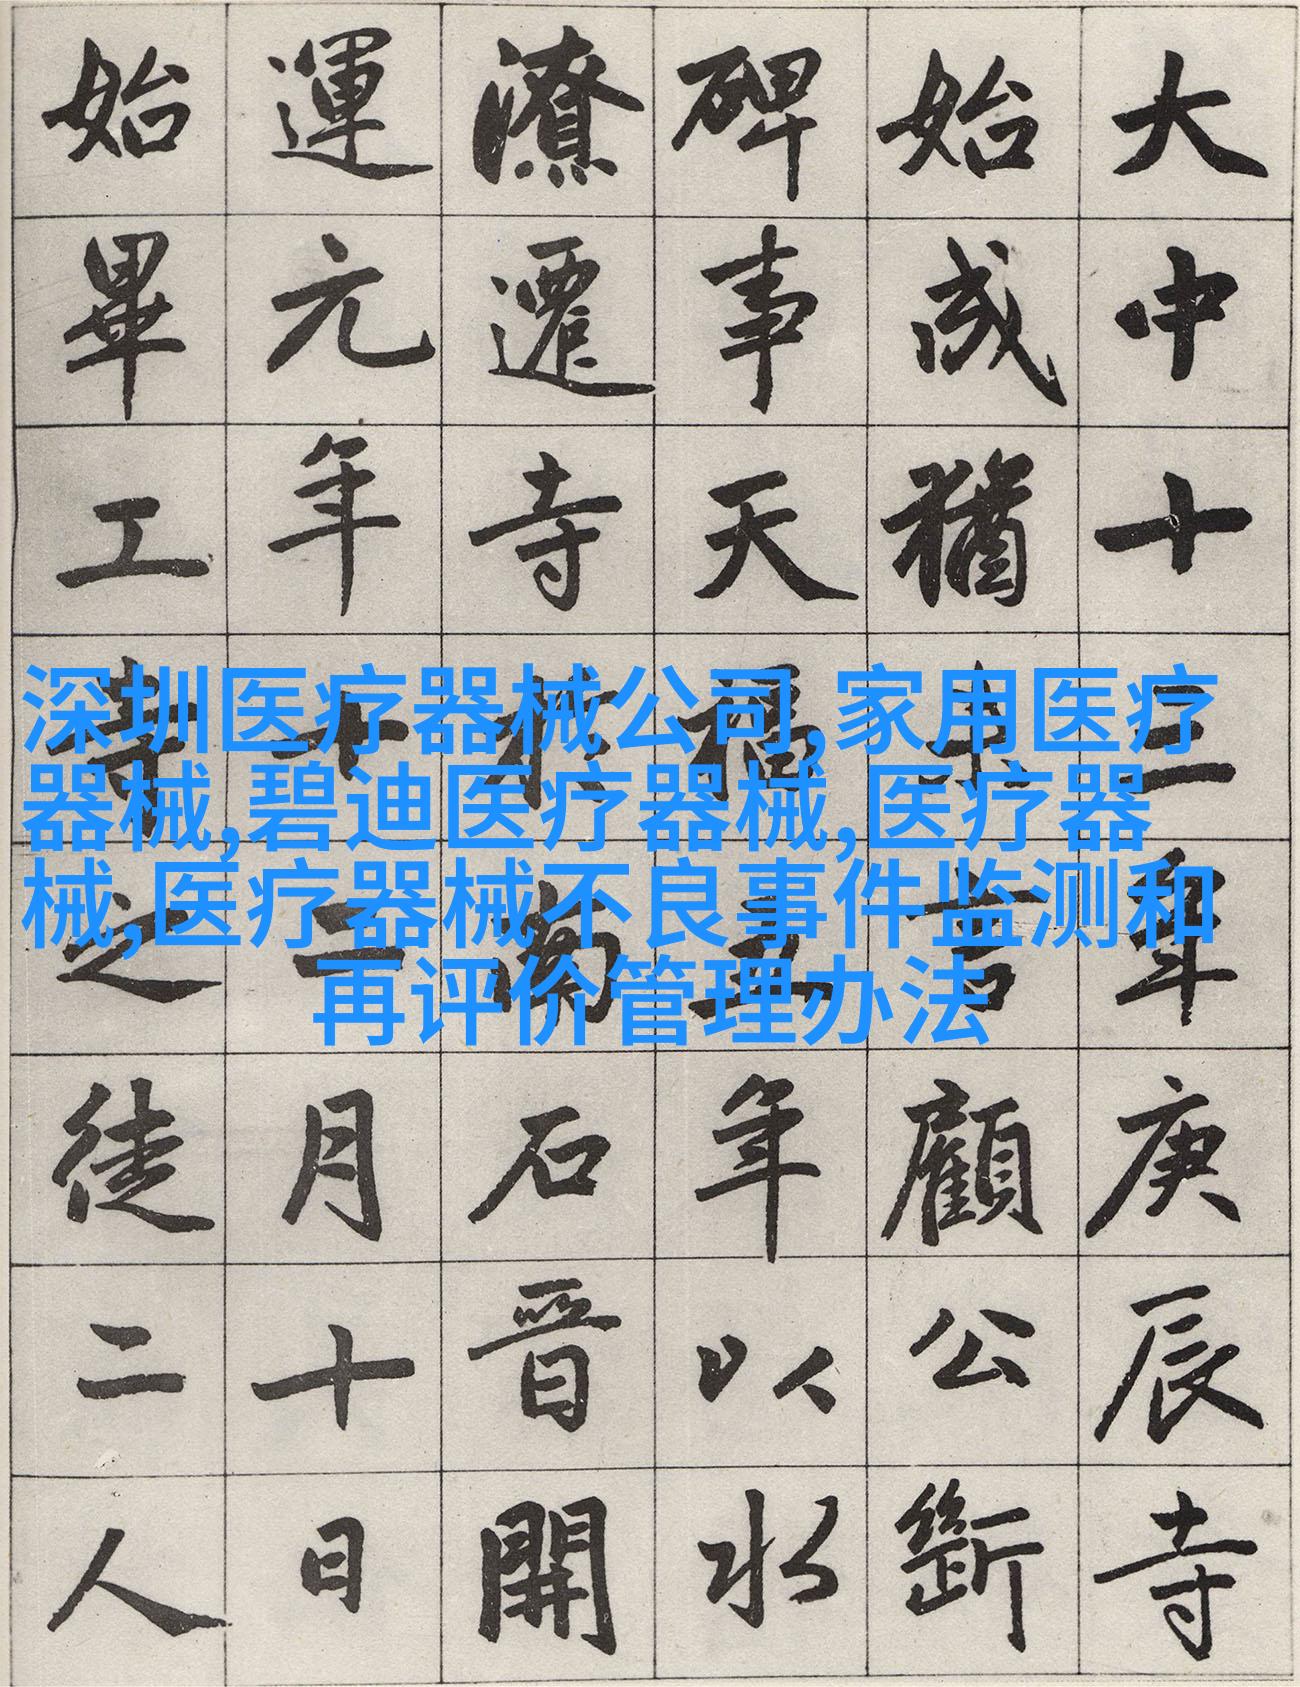 大中十三年庚辰寺
始成猶未言顧公
碑事天福五年以水
潦遷寺於南石晉開
運元年十二月十日
始畢工之徒二人
深圳医疗器械公司,家用医疗
器械,碧迪医疗器械,医疗器
械,医疗器械不良事件监测和
再评价管理办法